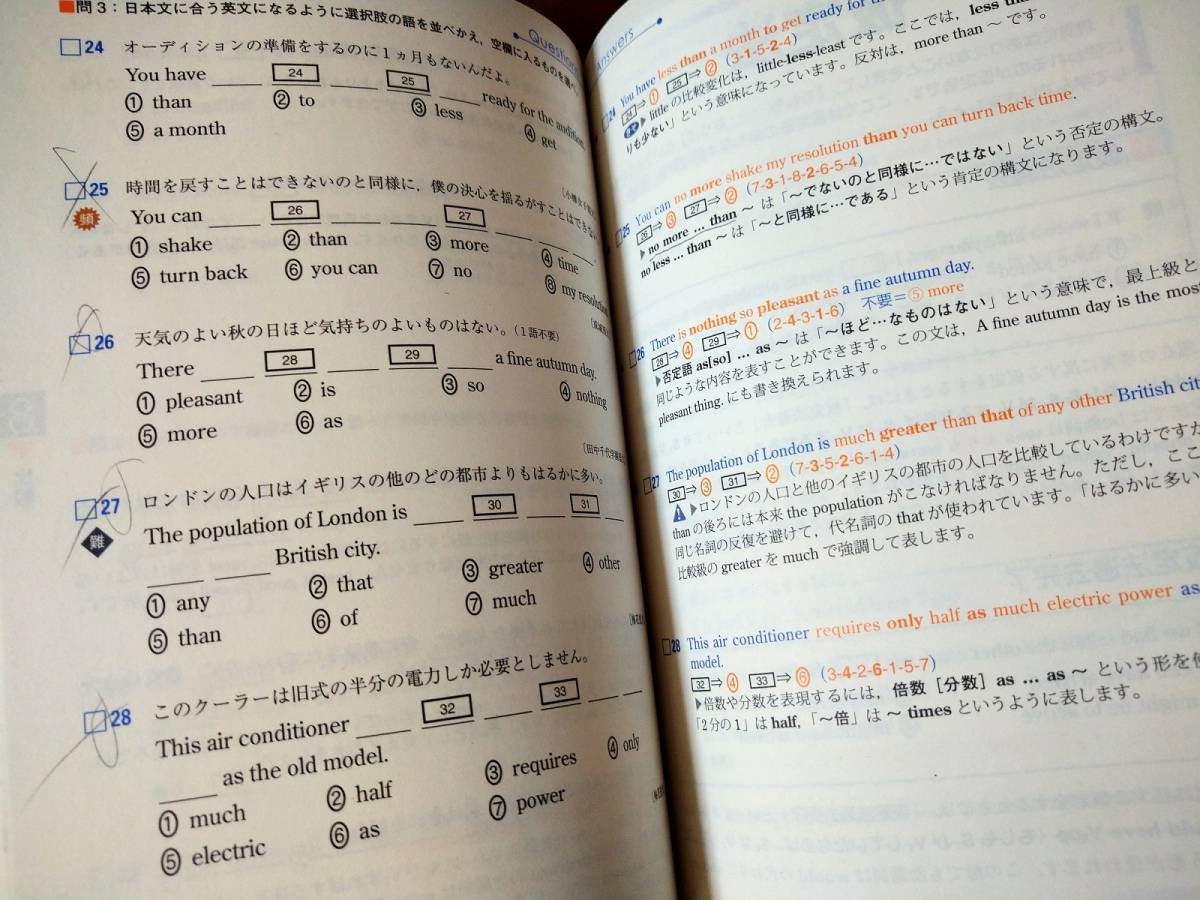 ■問3：日本文に合う英文になるように選択肢の語を並べかえ，空欄に入るものを選べ。
Question
24 オーディションの準備をするのに1ヵ月もないんだよ。
You have ____ 24 ____ 25 ____ ready for the audition.
① than ② to ③ less ④ get
⑤ a month
25 時間を戻すことはできないのと同様に，僕の決心を揺るがすことはできない
頻
You can ____ 26 ____ ____ 27 ____ ____ ____.
① shake ② than ③ more ④ time
⑤ turn back ⑥ you can ⑦ no ⑧ my resolution
26 天気のよい秋の日ほど気持ちのよいものはない。（1語不要）
There ____ 28 ____ 29 ____ a fine autumn day.
① pleasant ② is ③ so ④ nothing
⑤ more ⑥ as
27 ロンドンの人口はイギリスの他のどの都市よりもはるかに多い。
難
The population of London is ____ 30 ____ 31 ____
____ ____ British city.
① any ② that ③ greater ④ other
⑤ than ⑥ of ⑦ much
28 このクーラーは旧式の半分の電力しか必要としません。
This air conditioner ____ 32 ____ 33 ____ ____
____ as the old model.
① much ② half ③ requires ④ only
⑤ electric ⑥ as ⑦ power
Answers
24 You have less than a month to get ready for the
24⇒① 25⇒② (3-1-5-2-4)
▶littleの比較変化は，little-less-leastです。ここでは，less than
りも少ない」という意味になっています。反対は，more than ～ です。
25 You can no more shake my resolution than you can turn back time.
26⇒③ 27⇒② (7-3-1-8-2-6-5-4)
▶no more … than ～ は「～でないのと同様に…ではない」という否定の構文。
no less … than ～ は「～と同様に…である」という肯定の構文になります。
26 There is nothing so pleasant as a fine autumn day.
28⇒④ 29⇒① (2-4-3-1-6) 不要＝⑤ more
▶否定語 as[so] … as ～ は「～ほど…なものはない」という意味で，最上級と
同じような内容を表すことができます。この文は，A fine autumn day is the most
pleasant thing. にも書き換えられます。
27 The population of London is much greater than that of any other British city
30⇒③ 31⇒② (7-3-5-2-6-1-4)
▶ロンドンの人口と他のイギリスの都市の人口を比較しているわけですが
thanの後ろには本来the populationがこなければなりません。ただし，ここ
同じ名詞の反復を避けて，代名詞のthatが使われています。「はるかに多い
比較級のgreaterをmuchで強調して表します。
28 This air conditioner requires only half as much electric power as
model.
32⇒④ 33⇒⑥ (3-4-2-6-1-5-7)
▶倍数や分数を表現するには，倍数［分数］as … as ～ という形を使
「2分の1」はhalf，「～倍」は～ timesというように表します。